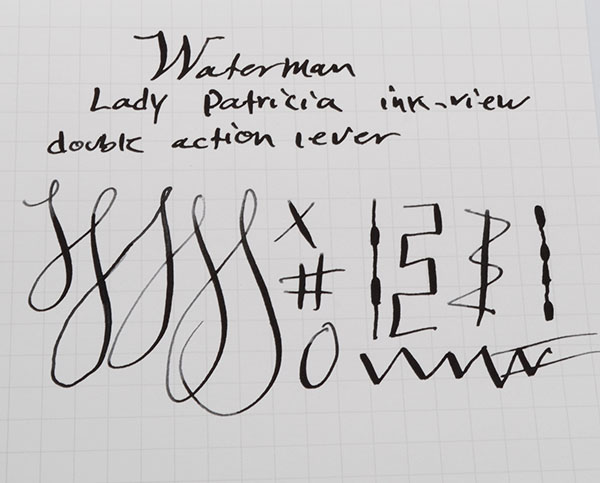 Waterman
Lady Patricia ink-view
double action lever
X
#
O